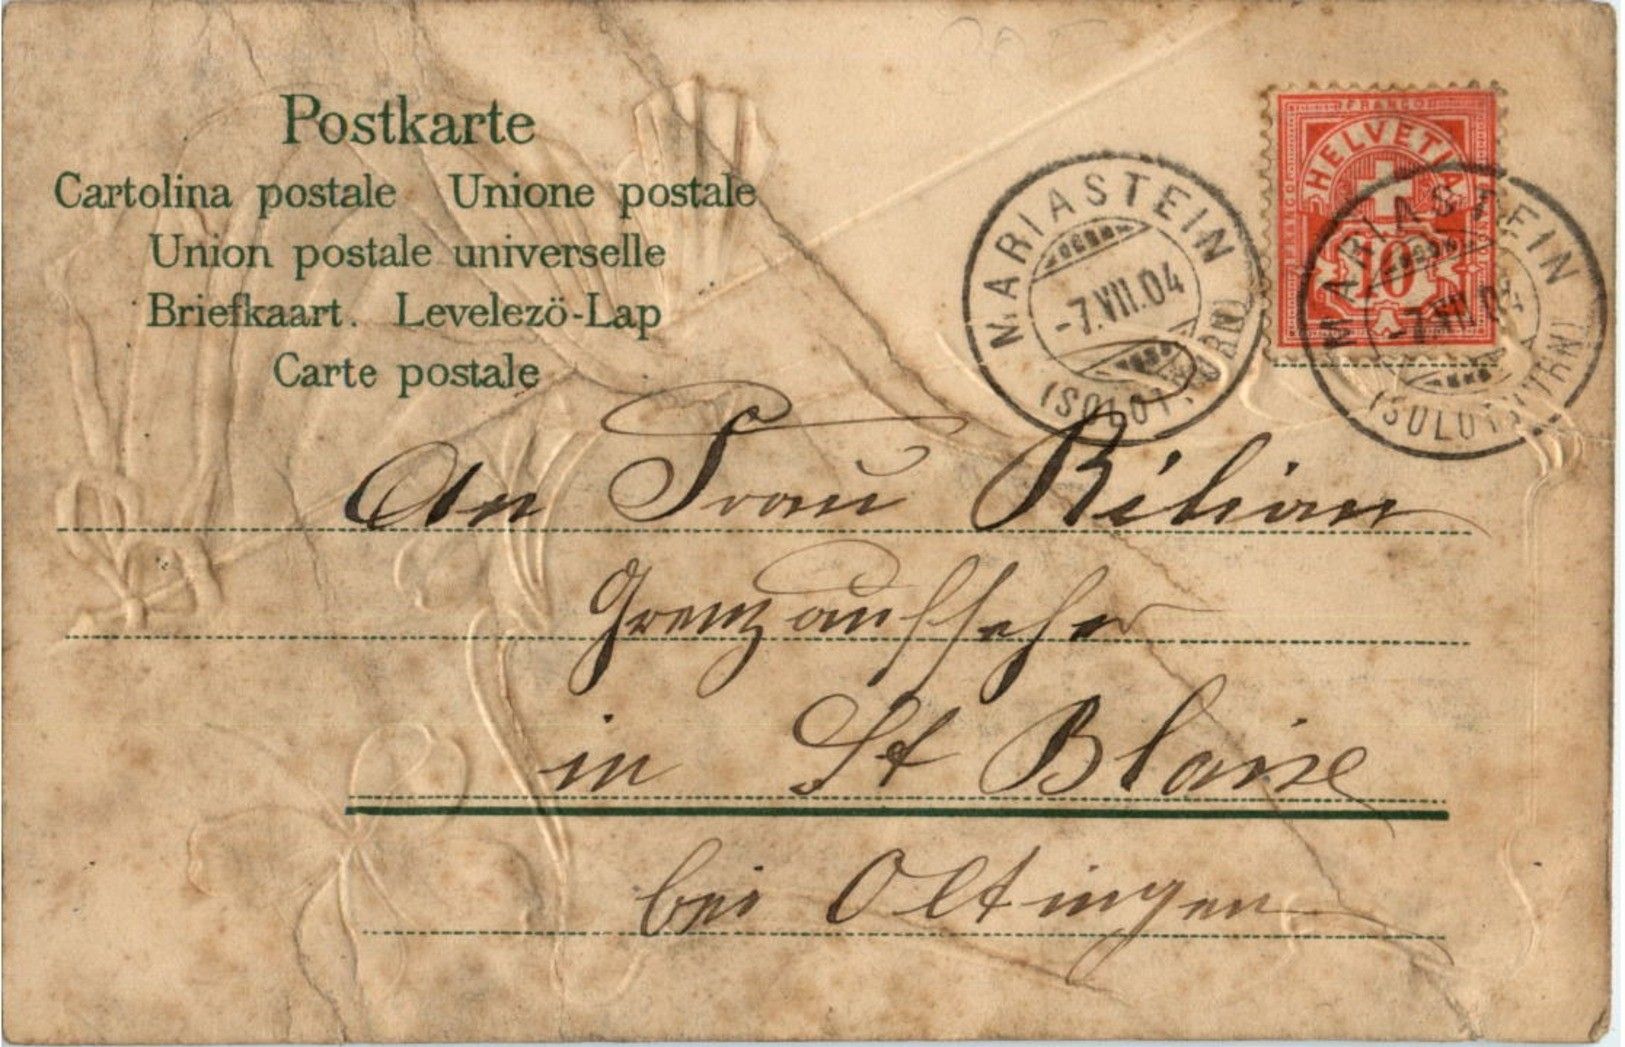 Postkarte
Cartolina postale Unione postale
Union postale universelle
Briefkaart. Levelezö-Lap
Carte postale
FRANCO
HELVETIA
10
MARIASTEIN
-7.VII.04
(SOLOTHURN)
MARIASTEIN
-7.VII.04
(SOLOTHURN)
An Frau Kilian
Grenzaufseher
in St Blaise
bei Oltingen